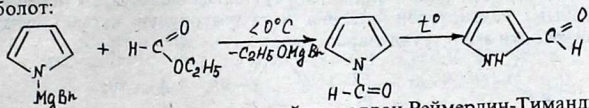 болот:
N
MgBr
+ H-C
O
OC2H5
<0°C
-C2H5OMgBr
N
H-C=O
t°
NH
C
O
H
Реймерлин-Тиманд